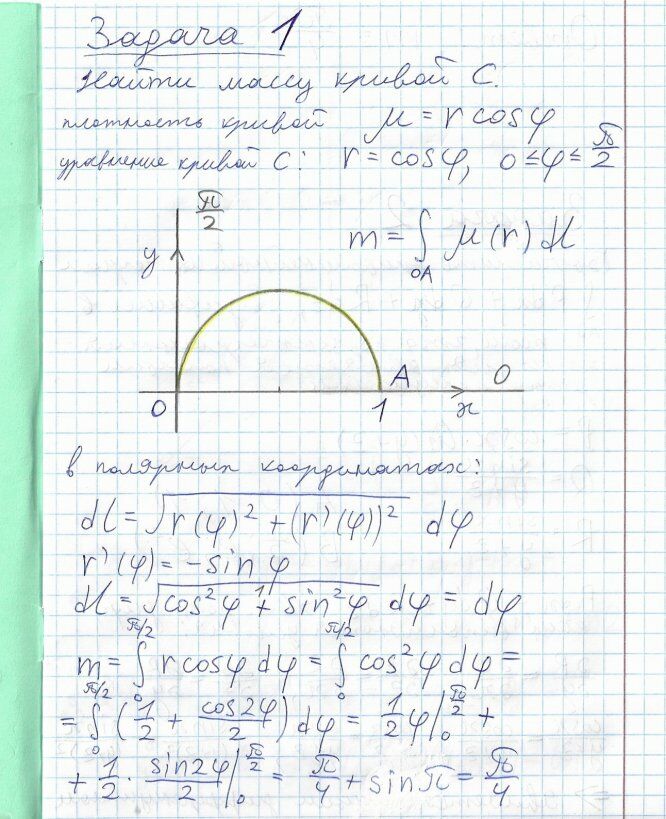 Задача 1
Найти массу кривой C.
плотность кривой μ = r cosφ
уравнение кривой C: r = cosφ, 0 ≤ φ ≤ π/2
π/2
y
m = ∫₀A μ(r) dl
A
0
0
1
x
в полярных координатах:
dl = √(r(φ)² + (r'(φ))²) dφ
r'(φ) = -sin φ
dl = √(cos²φ + sin²φ) dφ = dφ
m = ∫₀^(π/2) r cosφ dφ = ∫₀^(π/2) cos²φ dφ =
= ∫₀^(π/2) (1/2 + cos2φ/2) dφ = 1/2 φ|₀^(π/2) +
+ 1/2 · sin2φ/2|₀^(π/2) = π/4 + sin π = π/4